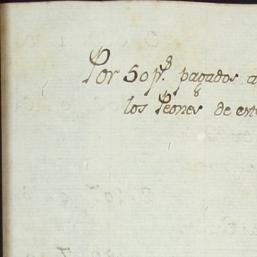 Por 50 p.s pagados a
los Peones de